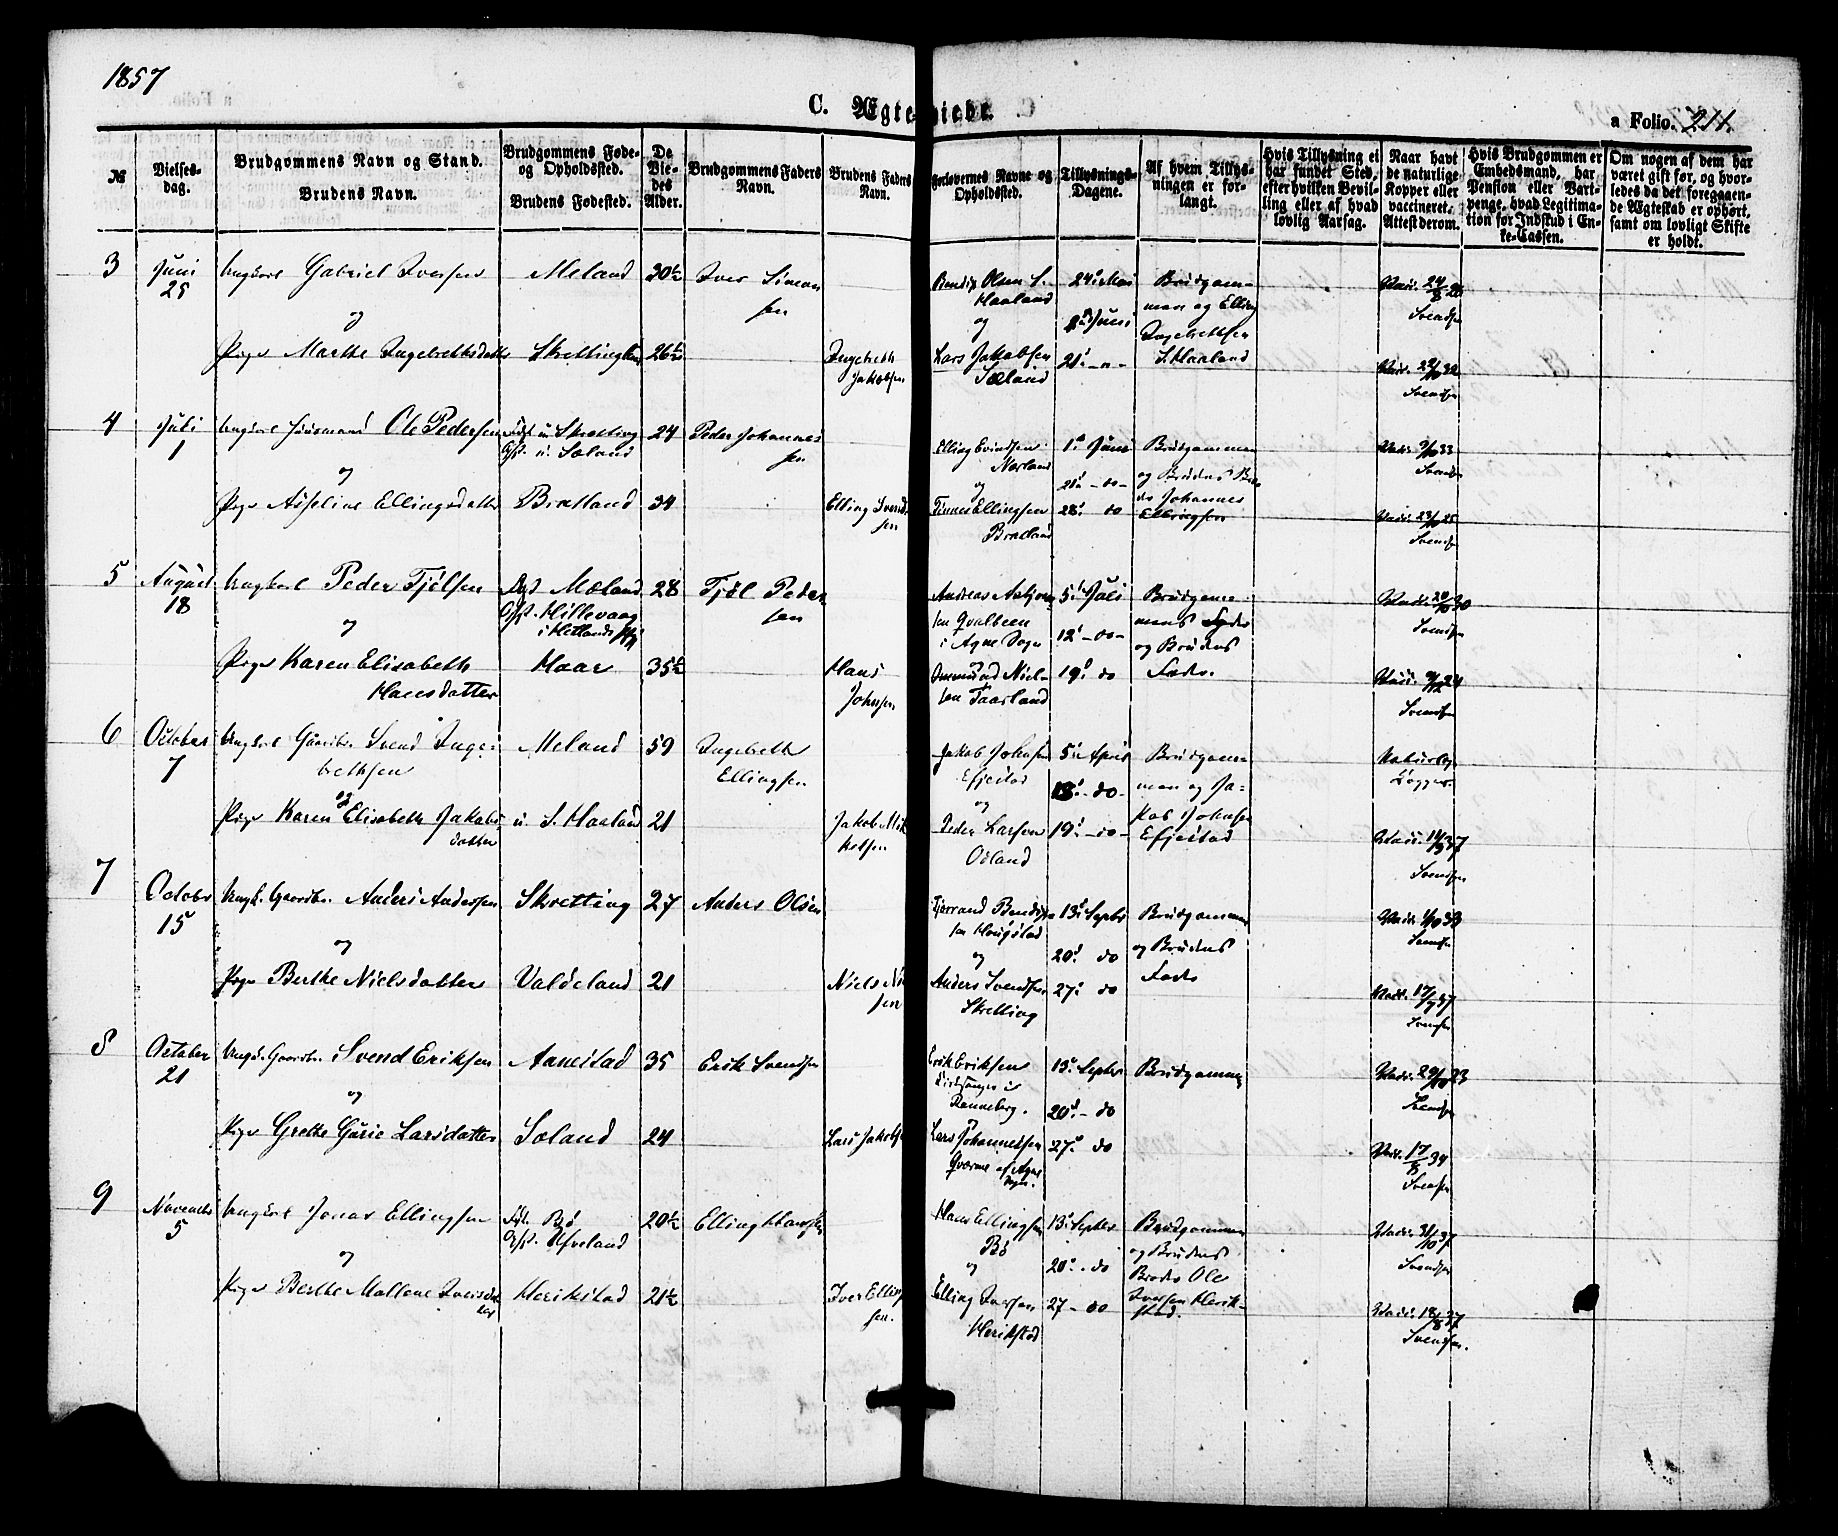 1857
C. Ægteviede.
a Folio. 211.
№
Vielses-
dag.
Brudgommens Navn og Stand.
Brudens Navn.
Brudgommens Føde-
og Opholdsted.
Brudens Fødested.
De
Vie-
des
Alder.
Brudgommens Faders
Navn.
Brudens Faders
Navn.
Forlovernes Navne og
Opholdsted.
Tillysnings-
Dagene.
Af hvem Tillys-
ningen er for-
langt.
Hvis Tillysning ei
har fundet Sted,
efter hvilken Bevil-
ling eller af hvad
lovlig Aarsag.
Naar havt
de naturlige
Kopper eller
vaccineret.
Attest derom.
Hvis Brudgommen er
Embedsmand, har
Pension eller Vart-
penge, hvad Legitima-
tion for Indskud i En-
ke-Cassen.
Om nogen af dem har
været gift før, og hvor-
ledes da det foregaaen-
de Ægteskab er ophørt,
samt om lovligt Skifte
er holdt.
3
Juni
25
Ungkarl Gabriel Iversen
og
Pige Marthe Ingebrethsdatter
Meland
30½
26½
Iver Simon
sen
Ingebreth
Jakobsen
Olsen S.
Haaland
og
Lars Jakobsen
Sæland
24 Mai
Juni
21 - " -
Brudgom-
men og Elling
Ingebrethsen
S. Haaland
Vacc. 24/8
Svendsen
Vacc. 32
Svendsen
4
Juli
1
Ungkarl Huusmand Ole Pedersen
og
Pige Ellingsdatter
Født u. Skretting
Oph. u. Sæland
Bratland
24
34
Peder Johannes
sen
Elling Svend
sen
Elling
og
Ellingsen
Bratland
1 Juni
21 - do -
28 do
Brudgommen
og Brudens Bro
der Johannes
Ellingsen
Vacc. 33
Svendsen
Vacc. 25
Svendsen
5
August
18
Ungkarl Peder Tjølsen
og
Pige Karen Elisabeth
Hansdatter
Født Mæland
Oph. Hillevaag
i Hetlands
Haar
28
35½
Tjøl Peder
sen
Hans
Johnsen
Andreas
sen Qvalbeen
i Ogne Sogn
Nie-
sen Taarland
5 Juli
12 - do -
19 do
Brudgom-
mens Fader
og Brudens
Fader.
Vacc. 20
Svendsen
Vacc. 24
Svendsen
6
October
7
Ungkarl Gaardbr. Svend Inge-
brethsen
og
Pige Karen Elisabeth Jakobs
datter
Meland
u. S. Haaland
59
21
Ingebreth
Ellingsen
Jakob Mik
kelsen
Jakob Johnsen
Efjestad
og
Peder Larsen
Oland
5 April
13 - do -
19 - do -
Brudgom-
men og Ja-
kob Johnsen
Efjestad
Naturlige
Kopper
Vacc. 37
Svendsen
7
October
15
Ungk. Gaardbr. Anders Andersen
og
Pige Berthe Nielsdatter
Skretting
Valdeland
27
21
Anders Olsen
Niels Ni
sen
Bendix
sen Haugstad
og
Anders Svendsen
Skretting
13 Septbr
20 do
27 do
Brudgommen
og Brudens
Fader
Vacc. 33
Svendsen
Vacc. 17 37
Svendsen
8
October
21
Ungk. Gaardbr. Svend Eriksen
og
Pige Grethe Gurie Larsdatter
Aanestad
Sæland
35
24
Erik Svendsen
Lars Jakobs
Erik Eriksen
Kirkesanger i
Renneberg.
Lars Johannessen
Qvarme af Ogne
Sogn.
13 Septbr
20 - do
27 do
Brudgommen
Vacc. 29/10 23
Svendsen
Vacc. 17/8 34
Svendsen
9
November
5
Ungkarl Jonas Ellingsen
og
Pige Berthe Mallene Iversdat
ter
Født Bø
Oph. Ufveland
Herikstad
20½
21½
Elling Hansen
Iver Elling
sen.
Hans Ellingsen
Bø
og
Elling Iversen
Herikstad
13 Septbr
20 - do
27 - do
Brudgommen
og Brudens
Broder Ole
Iversen Herik-
stad.
Vacc. 31/10 37
Svendsen
Vacc. 18/8 37
Svendsen.